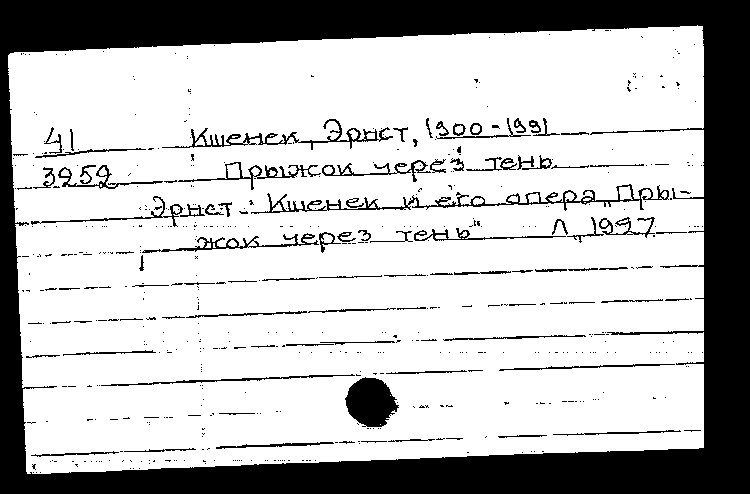 41 Кшенек, Эрнст, 1900-1991
3252 Прыжок через тень.
Эрнст Кшенек и его опера „Пры-
жок через тень" Л., 1927